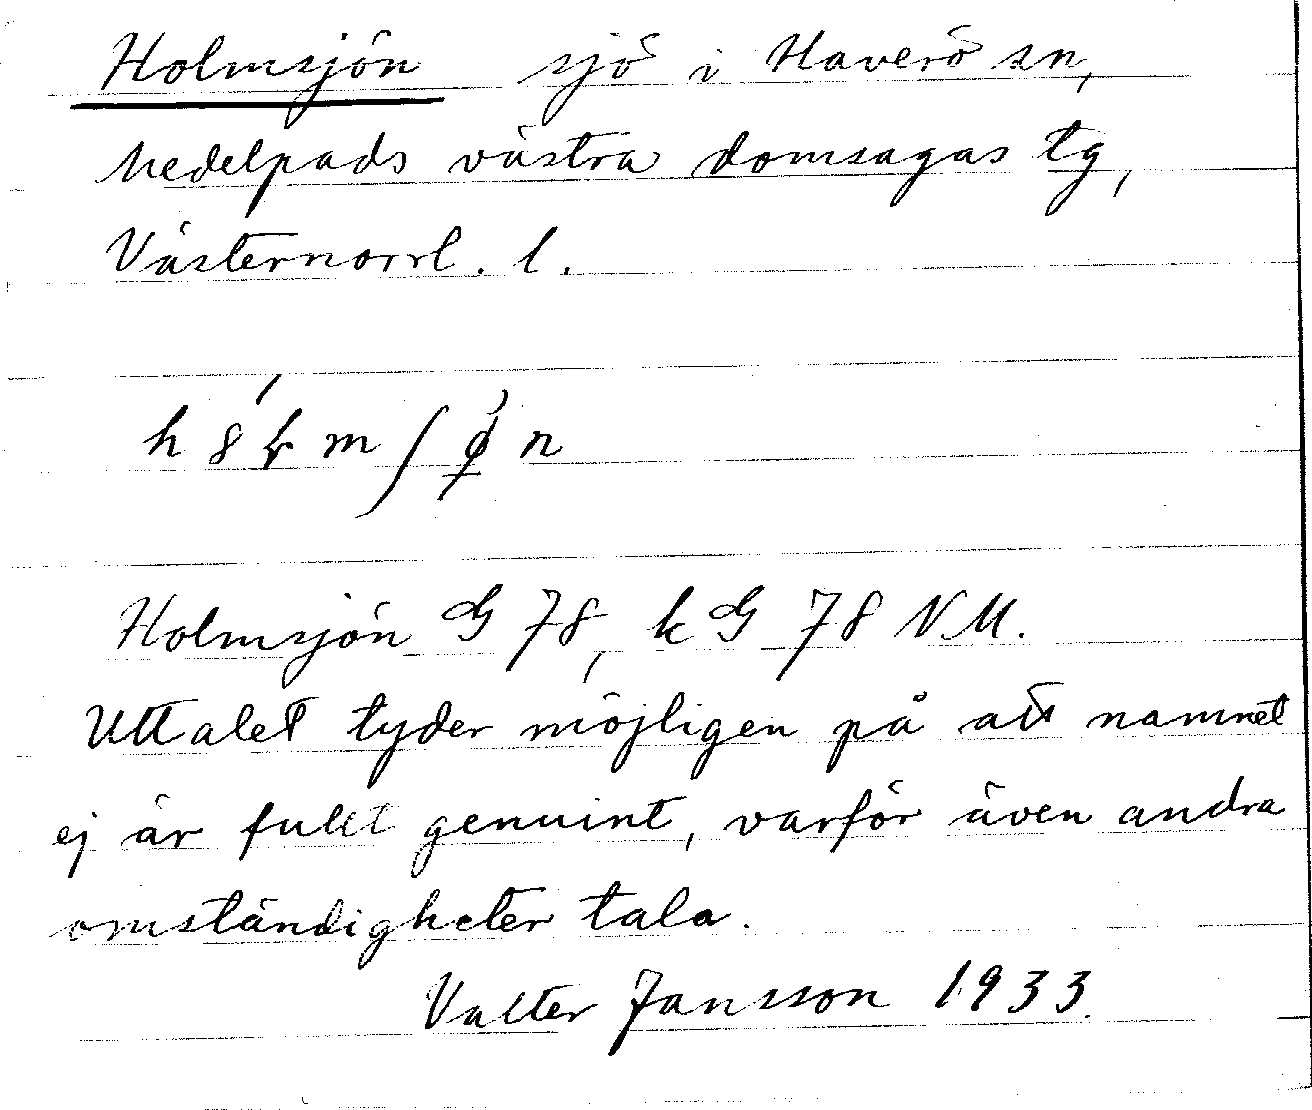 Holmsjön sjö i Haverö sn,
Medelpads västra domsagas tg,
Västernorrl. l.
Holmsjön G 78, k G 78 NM.
Uttalet tyder möjligen på att namnet
ej är fullt genuint, varför även andra
omständigheter tala.
Valter Jansson 1933.